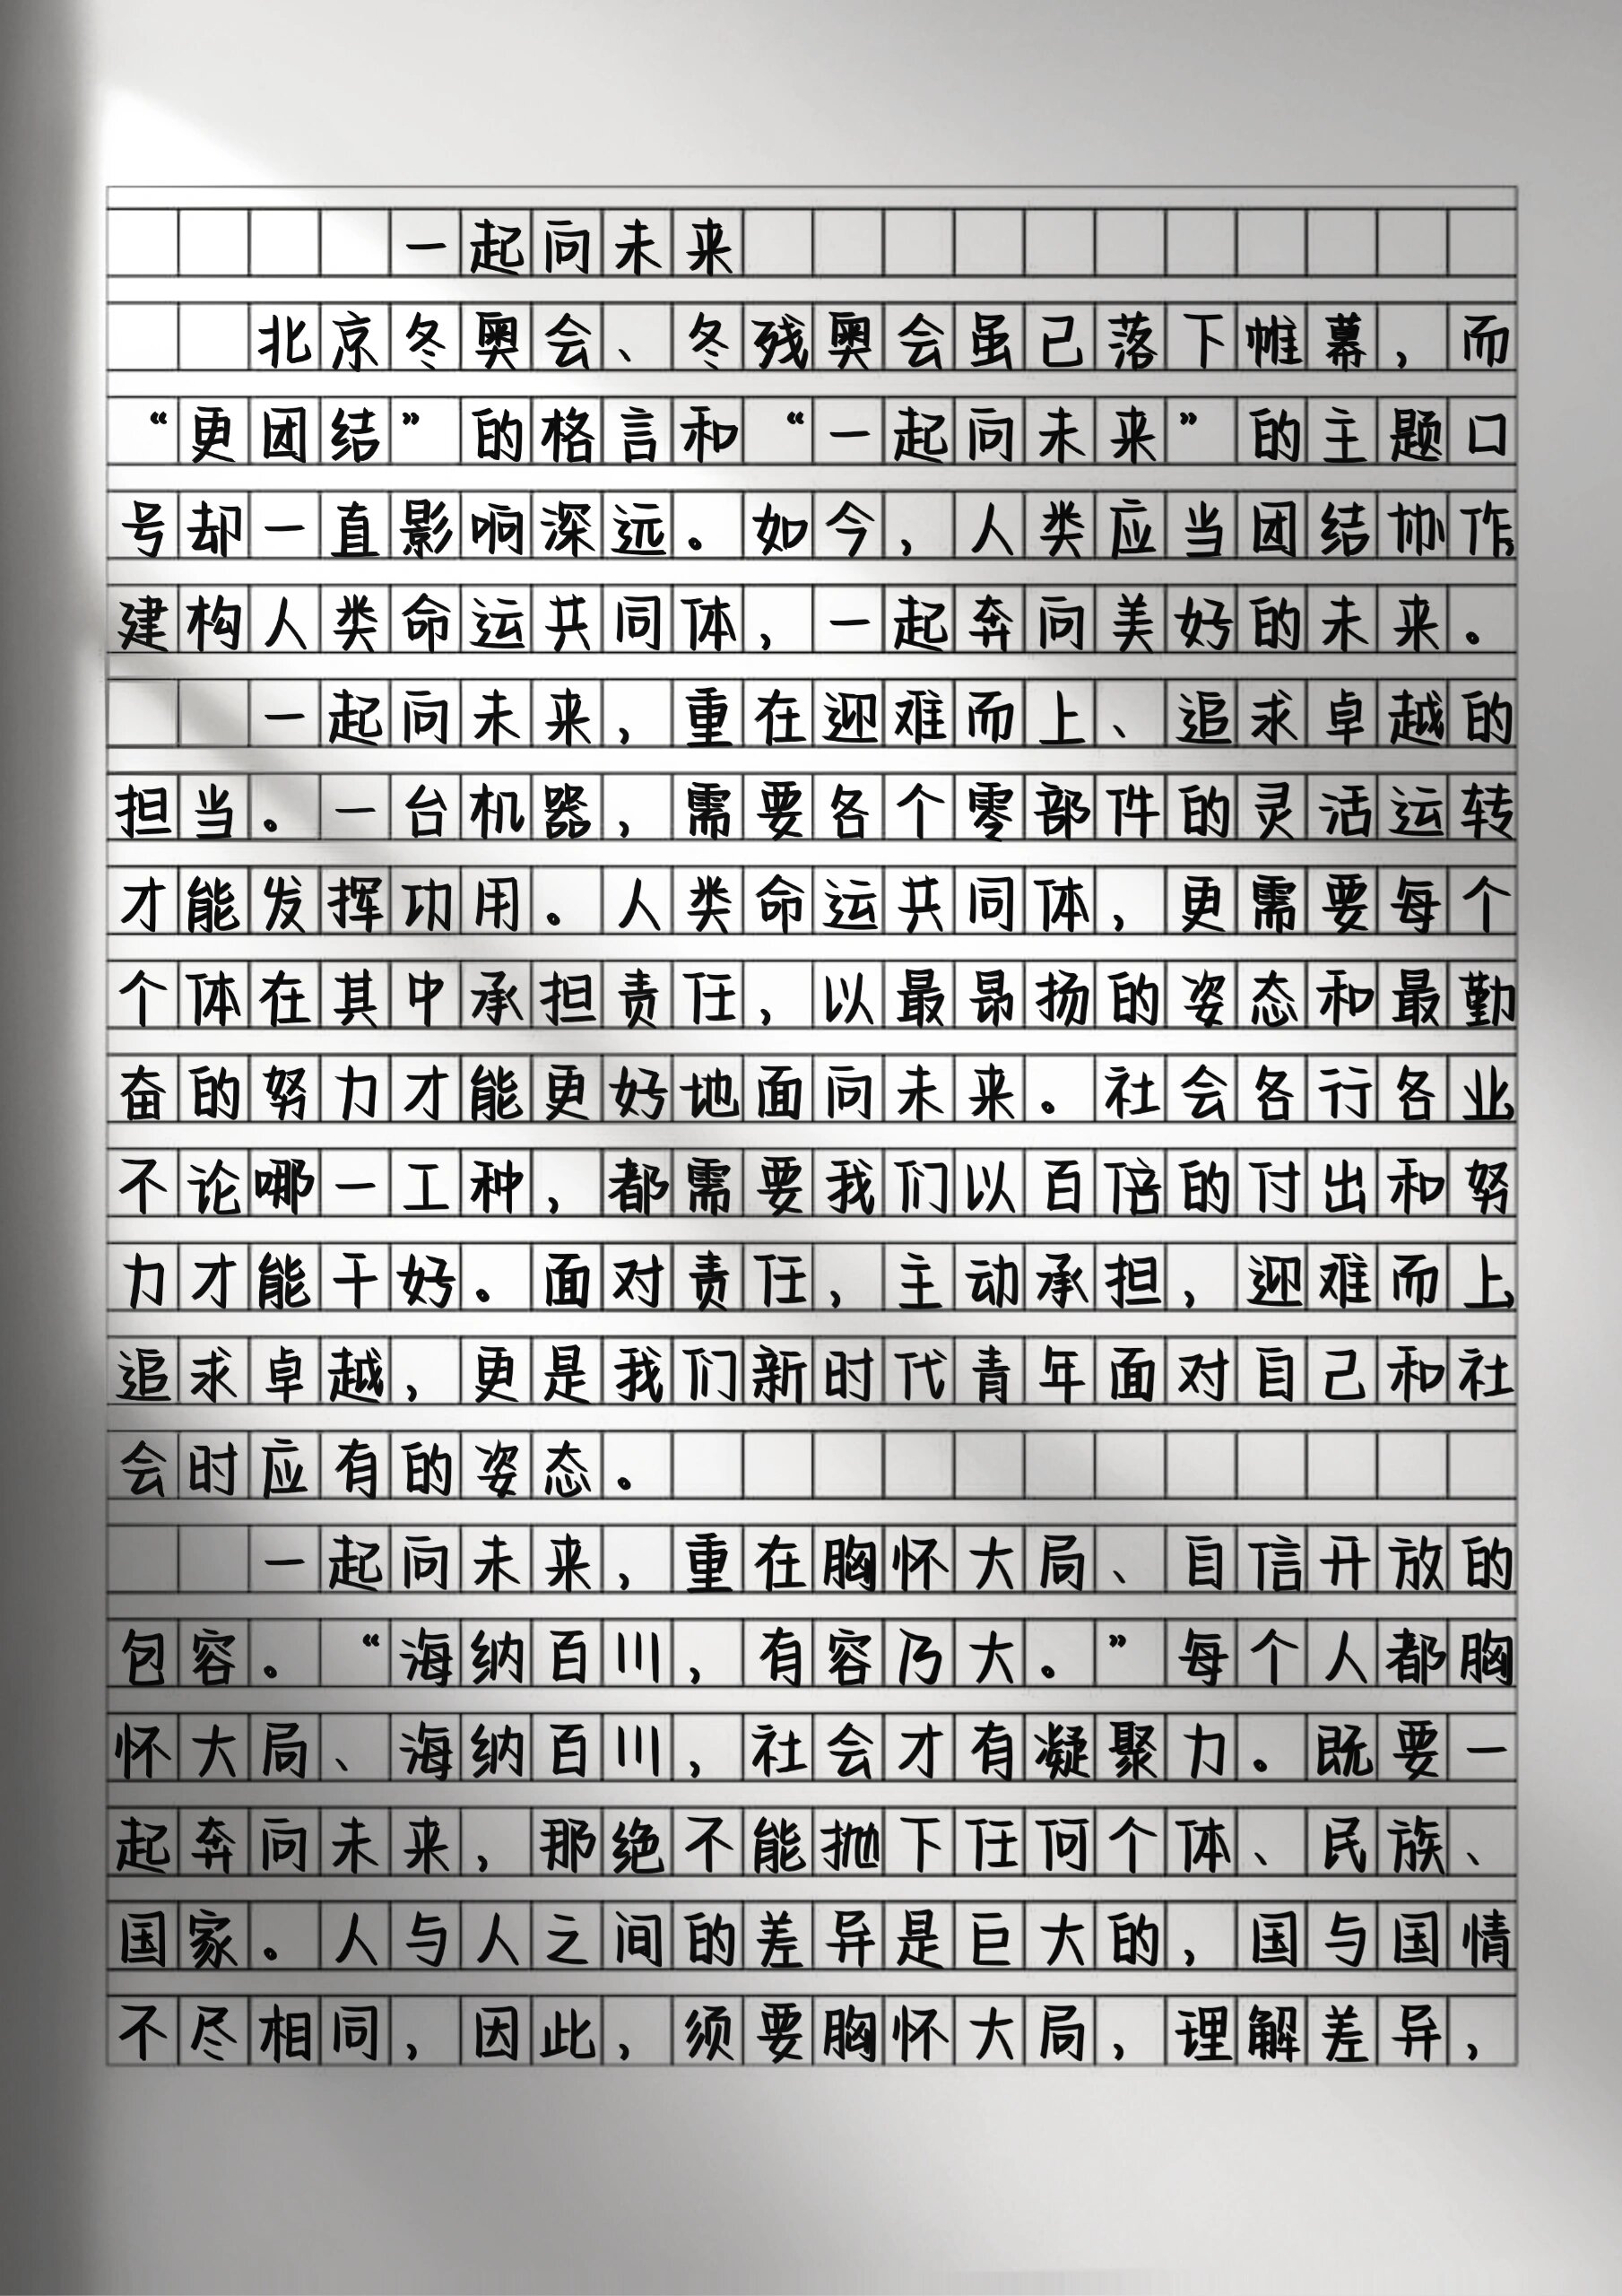 一起向未来
北京冬奥会、冬残奥会虽已落下帷幕，而
“更团结”的格言和“一起向未来”的主题口
号却一直影响深远。如今，人类应当团结协作，
建构人类命运共同体，一起奔向美好的未来。
一起向未来，重在迎难而上、追求卓越的
担当。一台机器，需要各个零部件的灵活运转
才能发挥功用。人类命运共同体，更需要每个
个体在其中承担责任，以最昂扬的姿态和最勤
奋的努力才能更好地面向未来。社会各行各业，
不论哪一工种，都需要我们以百倍的付出和努
力才能干好。面对责任，主动承担，迎难而上，
追求卓越，更是我们新时代青年面对自己和社
会时应有的姿态。
一起向未来，重在胸怀大局、自信开放的
包容。“海纳百川，有容乃大。”每个人都胸
怀大局、海纳百川，社会才有凝聚力。既要一
起奔向未来，那绝不能抛下任何个体、民族、
国家。人与人之间的差异是巨大的，国与国情
不尽相同，因此，须要胸怀大局，理解差异，